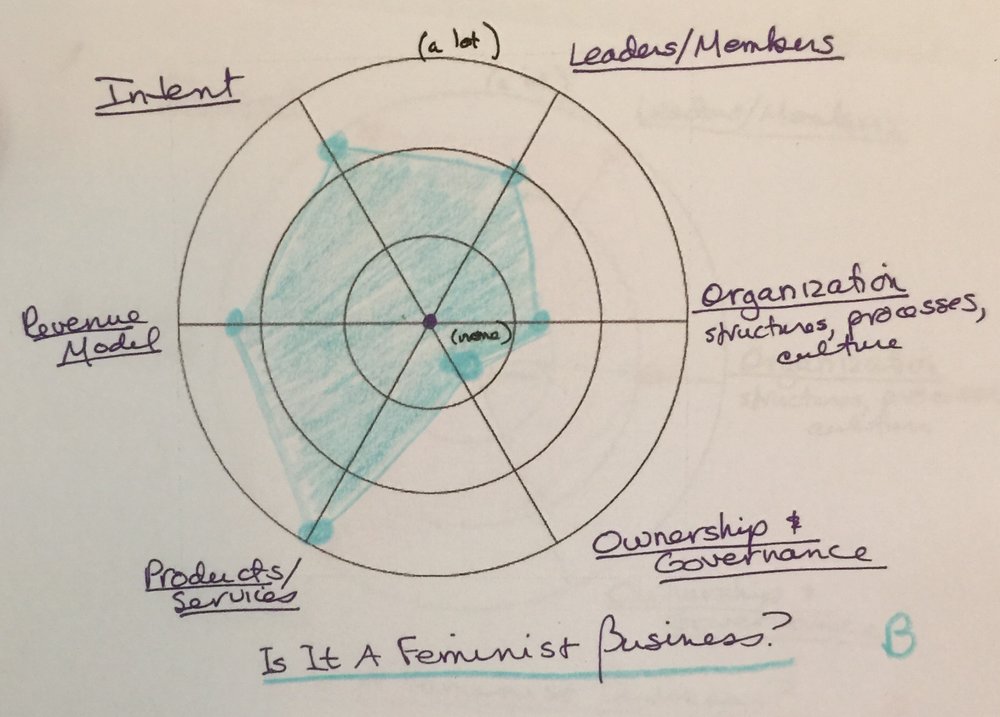 (a lot)
Leaders/Members
Intent
Revenue
Model
(none)
Organization
structures, processes,
culture
Ownership &
Governance
Products/
Services
Is It A Feminist Business?
B